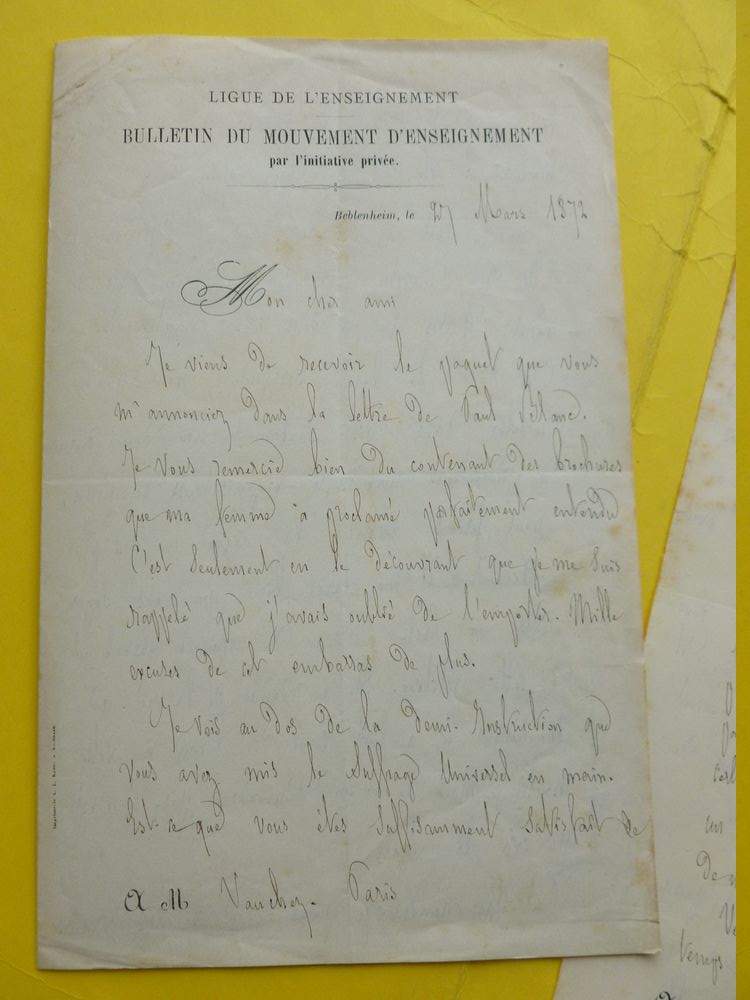 LIGUE DE L'ENSEIGNEMENT
BULLETIN DU MOUVEMENT D'ENSEIGNEMENT
par l'initiative privée.
Beblenheim, le 27 Mars 1872
Mon cher ami
Je viens de recevoir le paquet que vous
m'annonciez dans la lettre de Paul Blanc.
Je vous remercie bien du contenant des brochures
que ma femme a proclamé parfaitement entendu
C'est seulement en le découvrant que je me suis
rappelé que j'avais oublié de l'emporter. Mille
excuses de cet embarras de plus.
Je vois au dos de la Demi-Instruction que
vous avez mis le Suffrage Universel en main.
Est-ce que vous êtes suffisamment satisfait de
A M Vauchez. Paris
un
De
temps